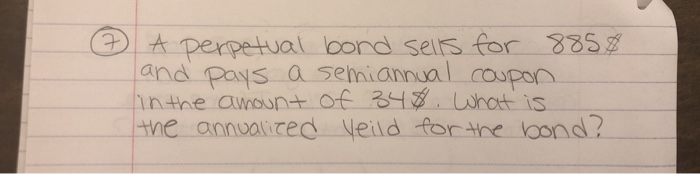 7 A perpetual bond sells for 885$
and pays a semiannual coupon
in the amount of 34$. What is
the annualized Yeild for the bond?